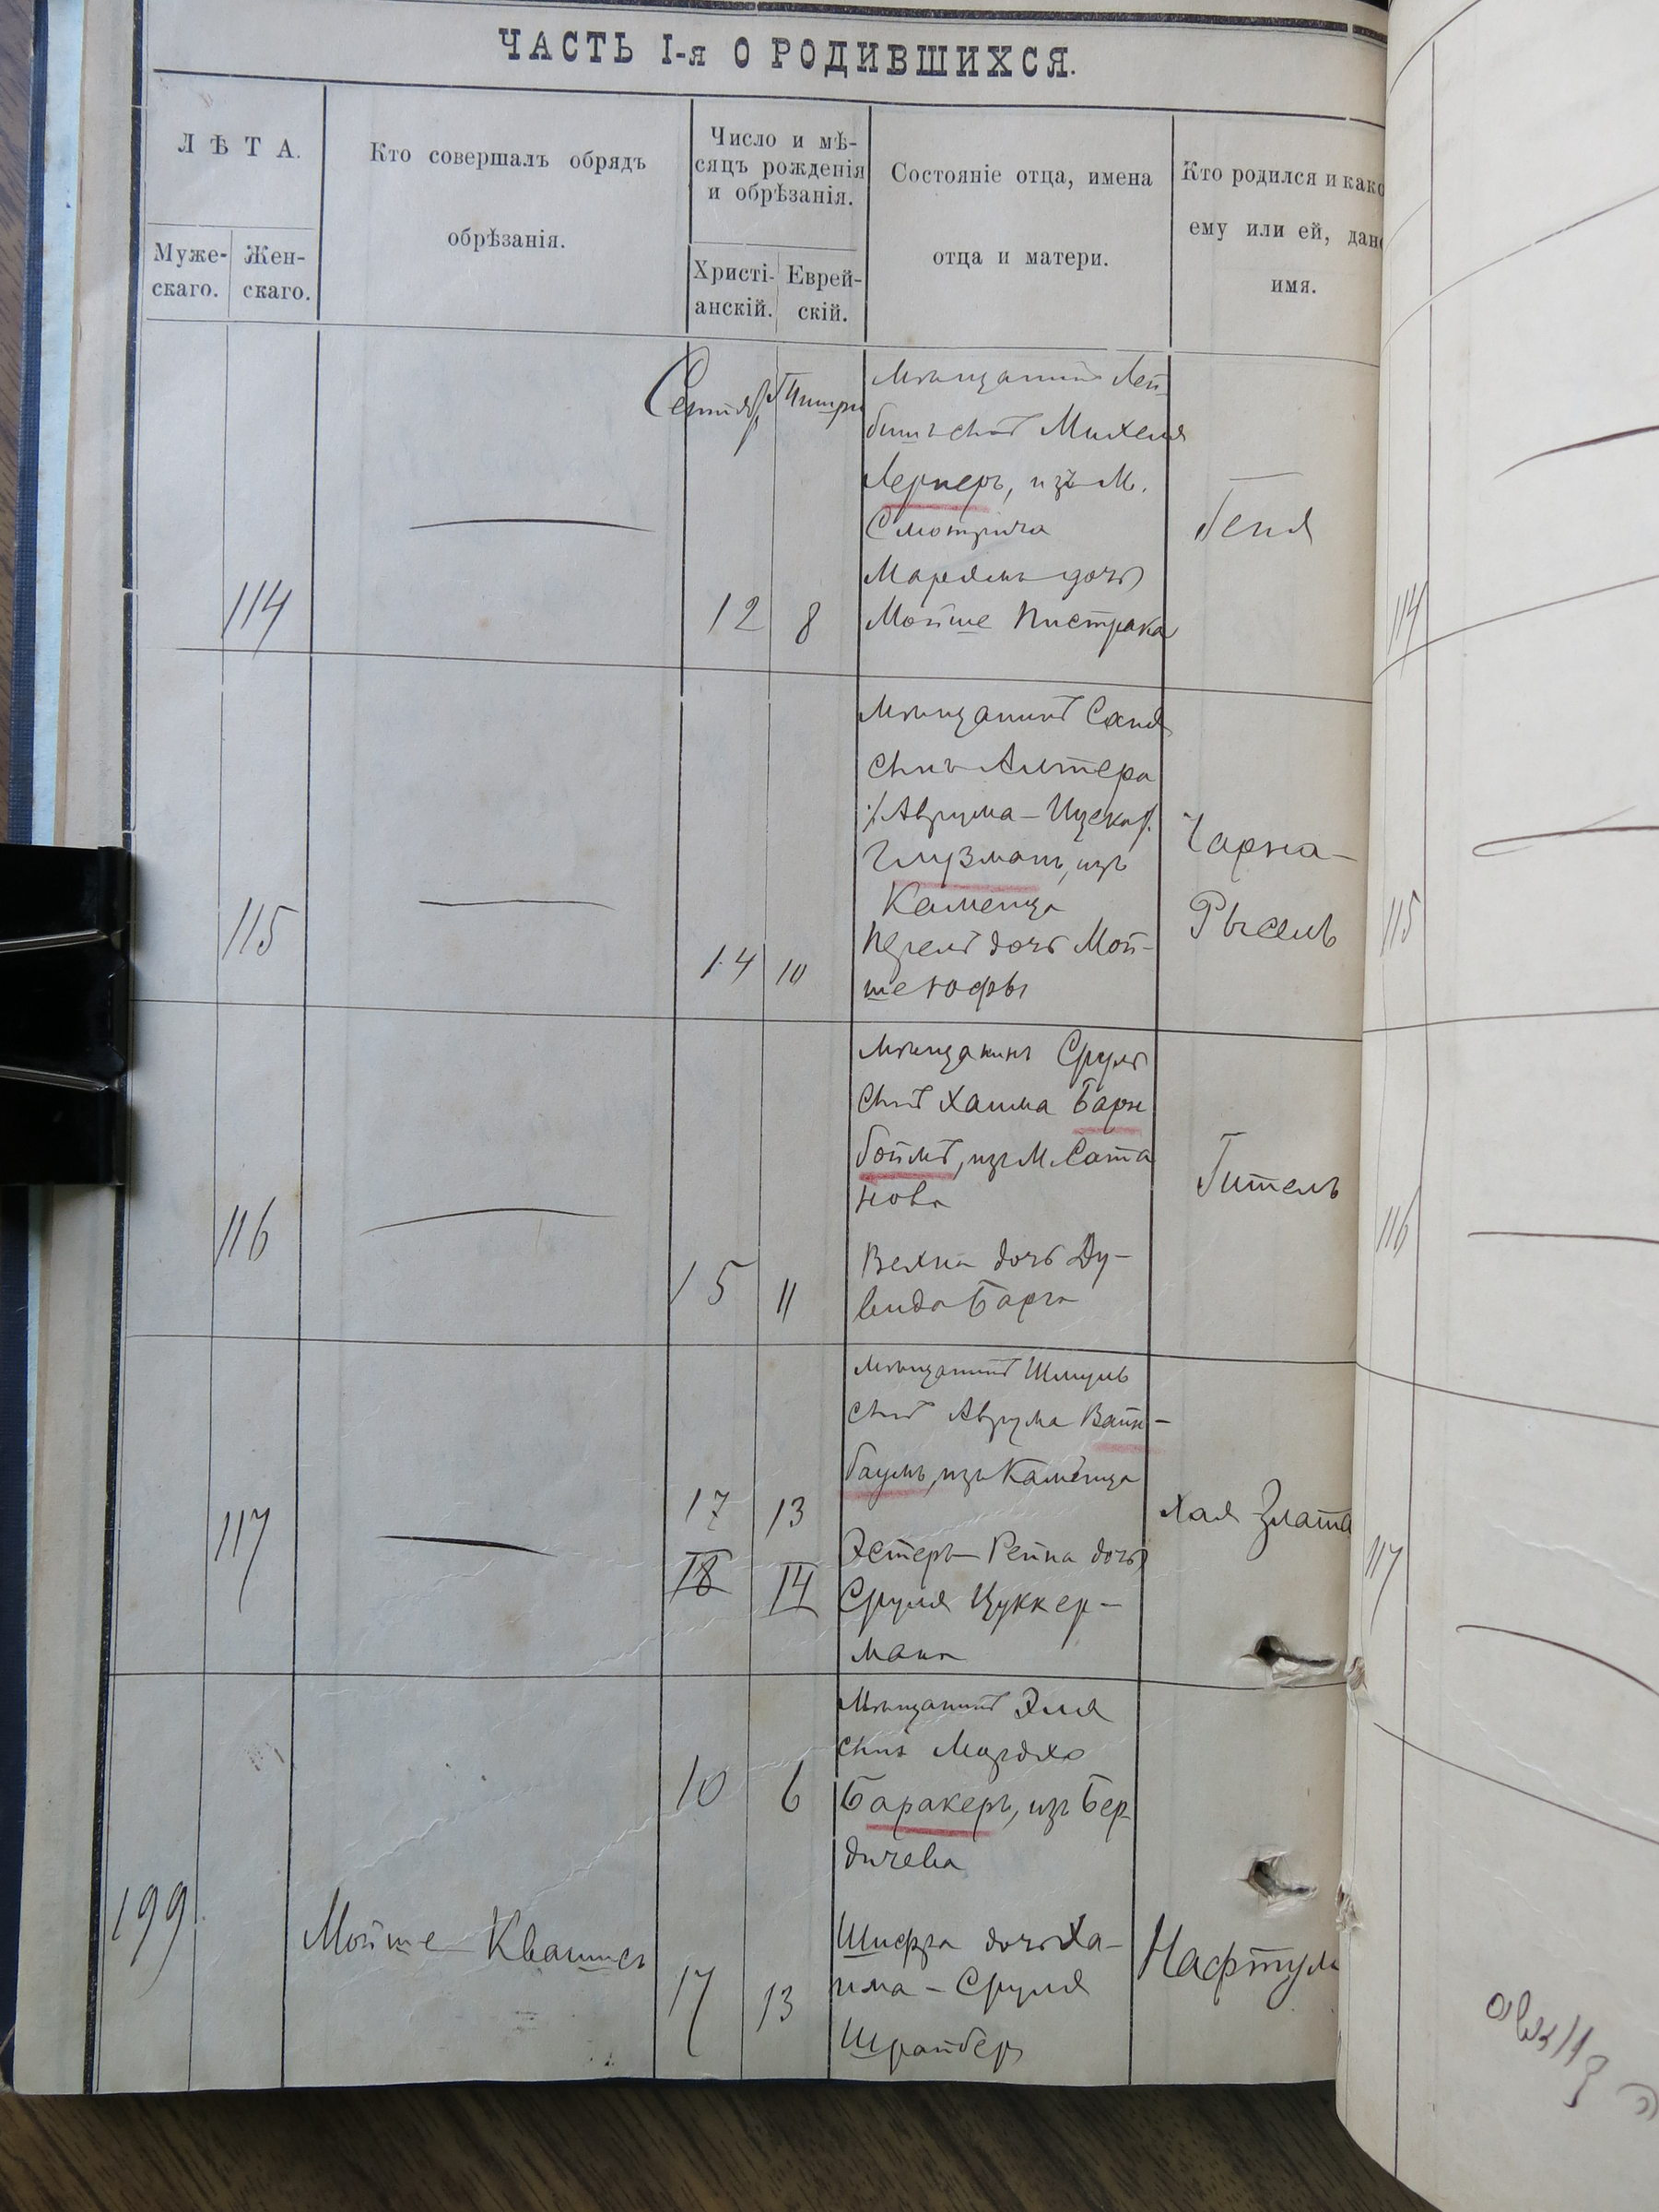 ЧАСТЬ I-я О РОДИВШИХСЯ.
ЛѢТА.
Муже-
скаго.
Жен-
скаго.
Кто совершалъ обрядъ
обрѣзанія.
Число и мѣ-
сяцъ рожденія
и обрѣзанія.
Христі-
анскій.
Еврей-
скій.
Состояніе отца, имена
отца и матери.
Кто родился и како
ему или ей, дано
имя.
114
Сентябр
Тишри
12
8
Мѣщанинъ Лей
бишъ сынъ Михеля
Лернеръ, изъ м.
Смотрича
Маріямъ дочь
Мойше Пистрака
Геня
114
115
14
10
Мѣщанинъ
сынъ Алтера
/Аврума-Ицека/
Глузманъ, изъ
Каменца
дочь Мой-
ше
Чарна-
Рысель
115
116
15
11
Мѣщанинъ Сруль
сынъ Хаима Барн
боймъ, изъ м. Сата
нова
дочь Ду-
вида
Гитель
116
117
17
13
18
14
Мѣщанинъ Шмуль
сынъ Аврума Вайн-
баумъ, изъ Каменца
Эстеръ-Рейка дочь
Сруля Цуккер-
мана
Хая Злата
117
199
Мойше
10
6
17
13
Мѣщанинъ Эля
сынъ Мордхо
Баракеръ, изъ Бер
дичева
Шифра дочь Ха-
има-Сруля
Шрайбер
Нафтули